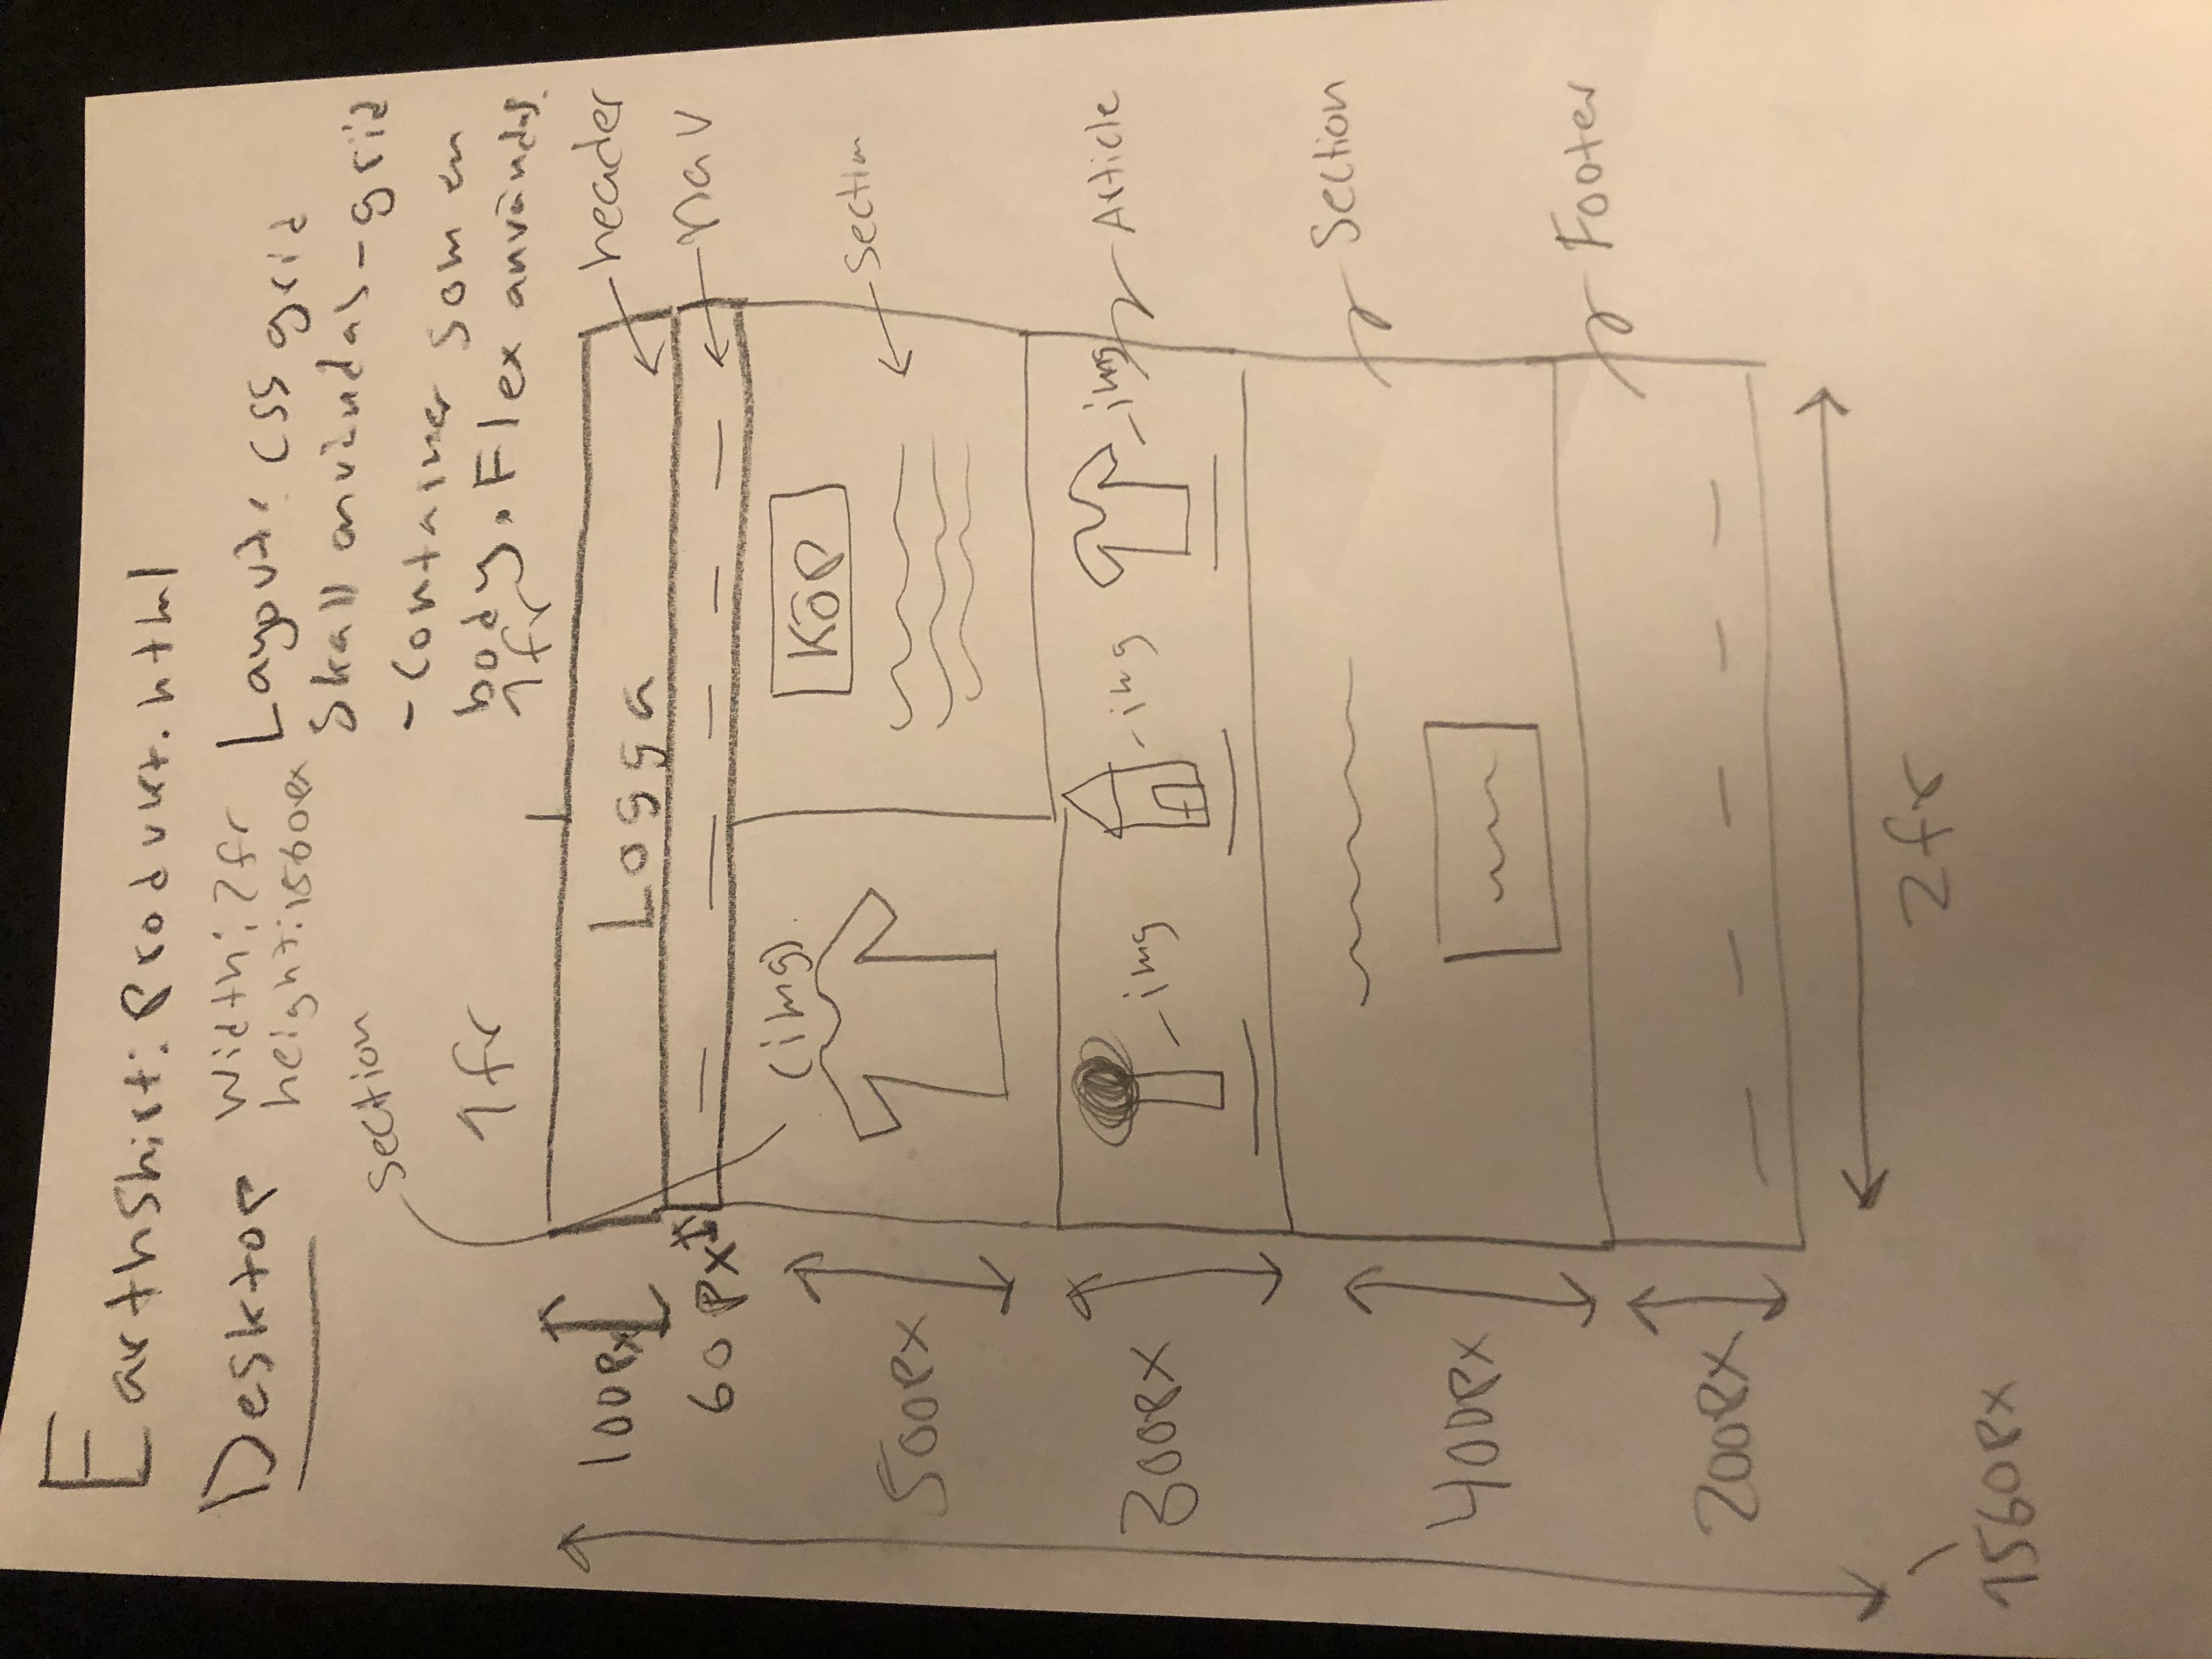 EarthShirt: Produkt.html
Desktop
Width: 2fr
height: 1560px
Layout: CSS grid
Skall användas - grid
- Container som en
body. Flex används.
Section
1fr
1fr
100px
Logga
header
60px
nav
(img)
KÖP
500px
Section
300px
- img
- img
- img
Article
Section
400px
Footer
200px
2fr
1560px